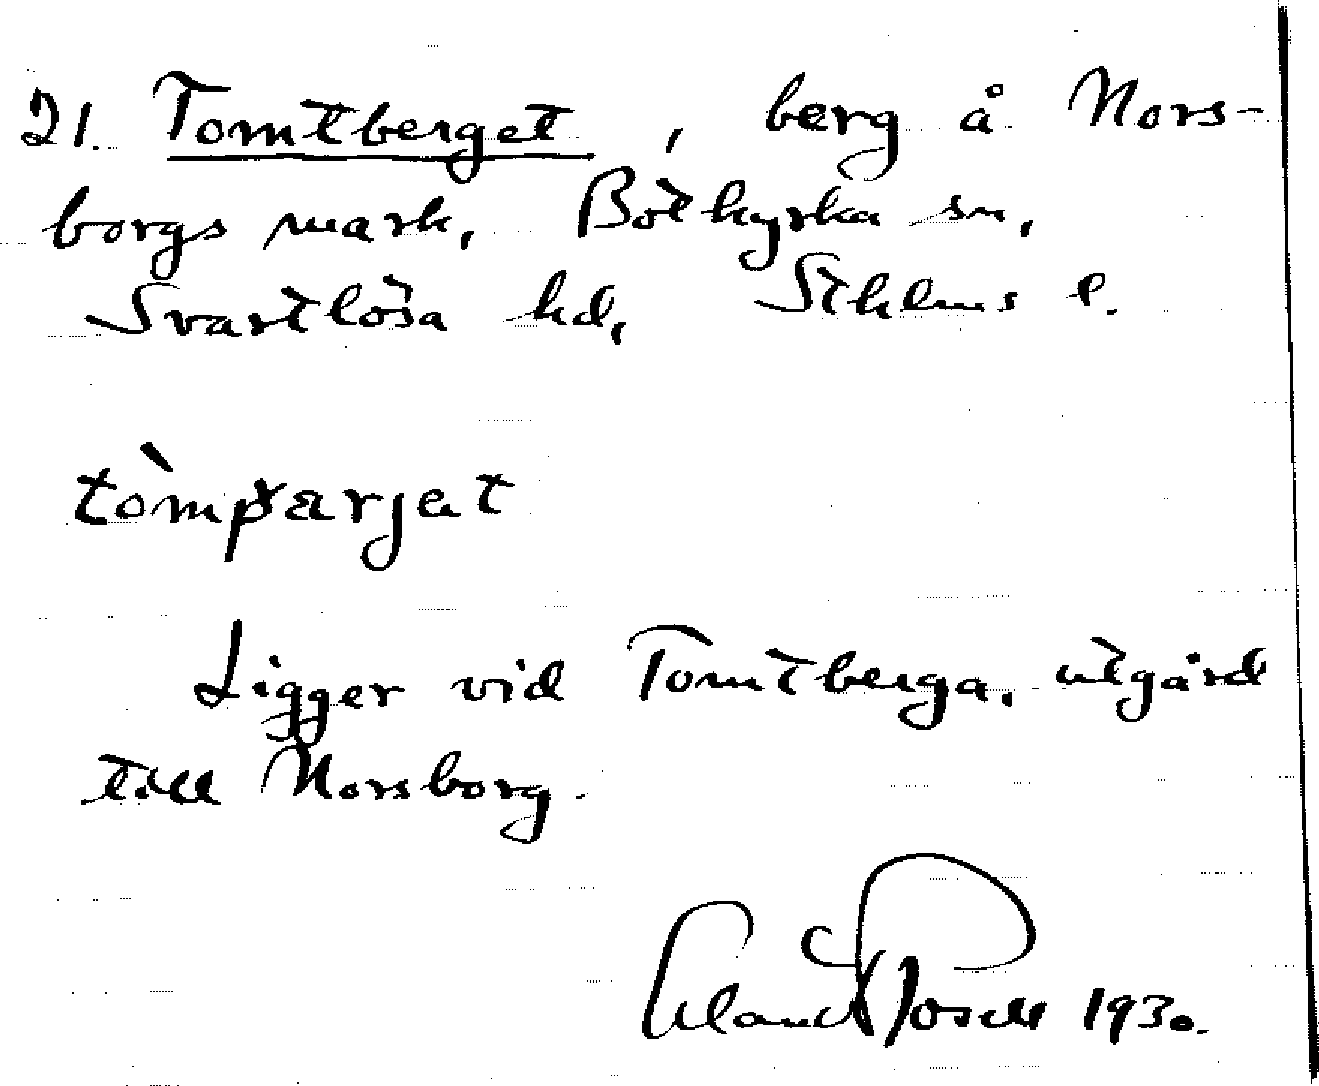 21. Tomtberget, berg å Nors-
borgs mark, Botkyrka sn,
Svartlösa hd, Sthlms l.
tòmpærjet
Ligger vid Tomtberga, utgård
till Norsborg.
Erland Rosell 1930.